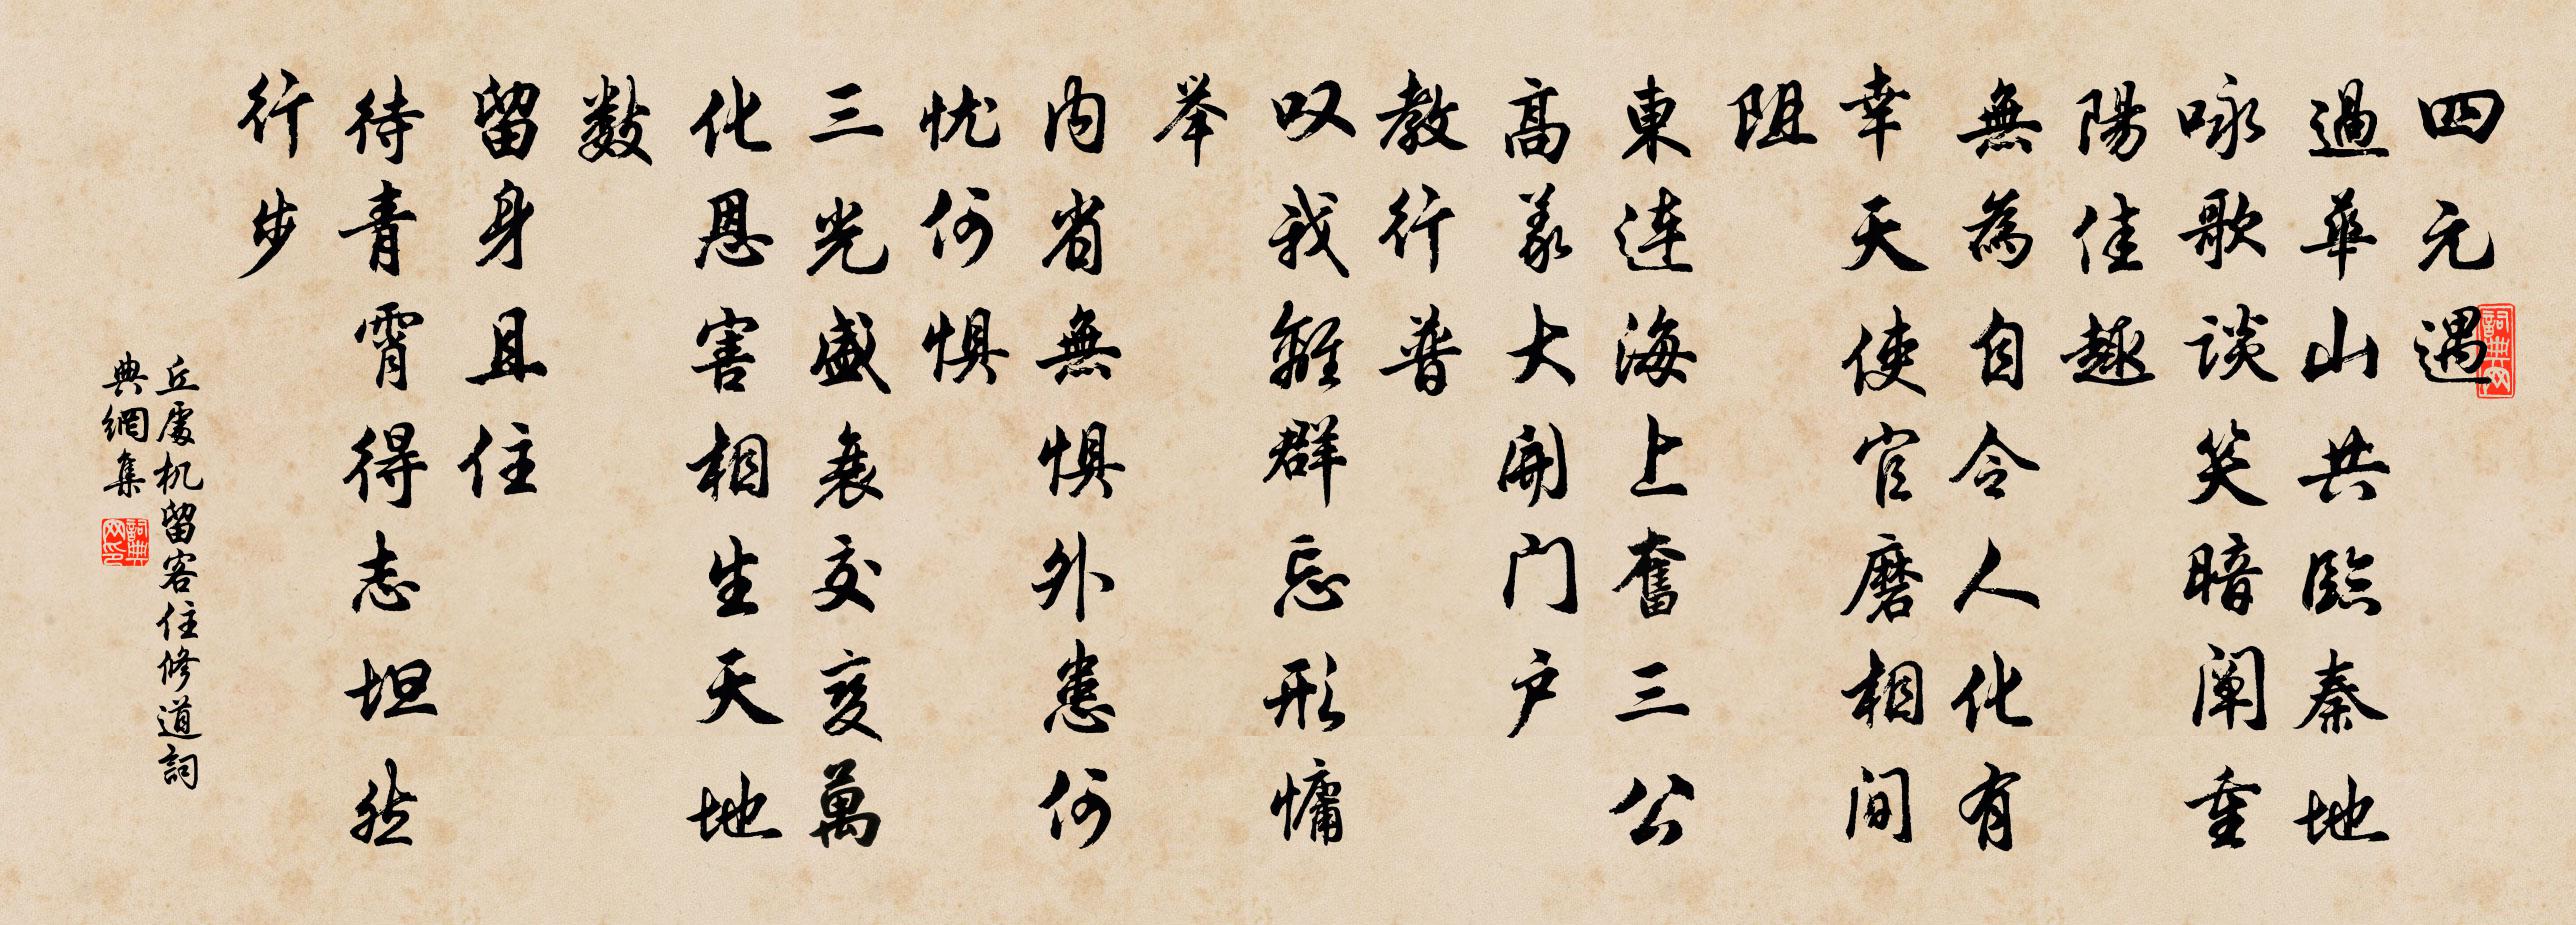 四元遇
過華山共臨秦地
咏歌谈笑暗阐重
陽佳趣
無為自令人化有
幸天使官磨相间
阻
東连海上奮三公
高義大開门户
教行普
叹我離群忘形慵
举
内省無惧外患何
忧何惧
三光盛衰交变萬
化恩害相生天地
数
留身且住
待青霄得志坦然
行步
丘處机留客住修道詞
典網集
詞典网
詞典网印